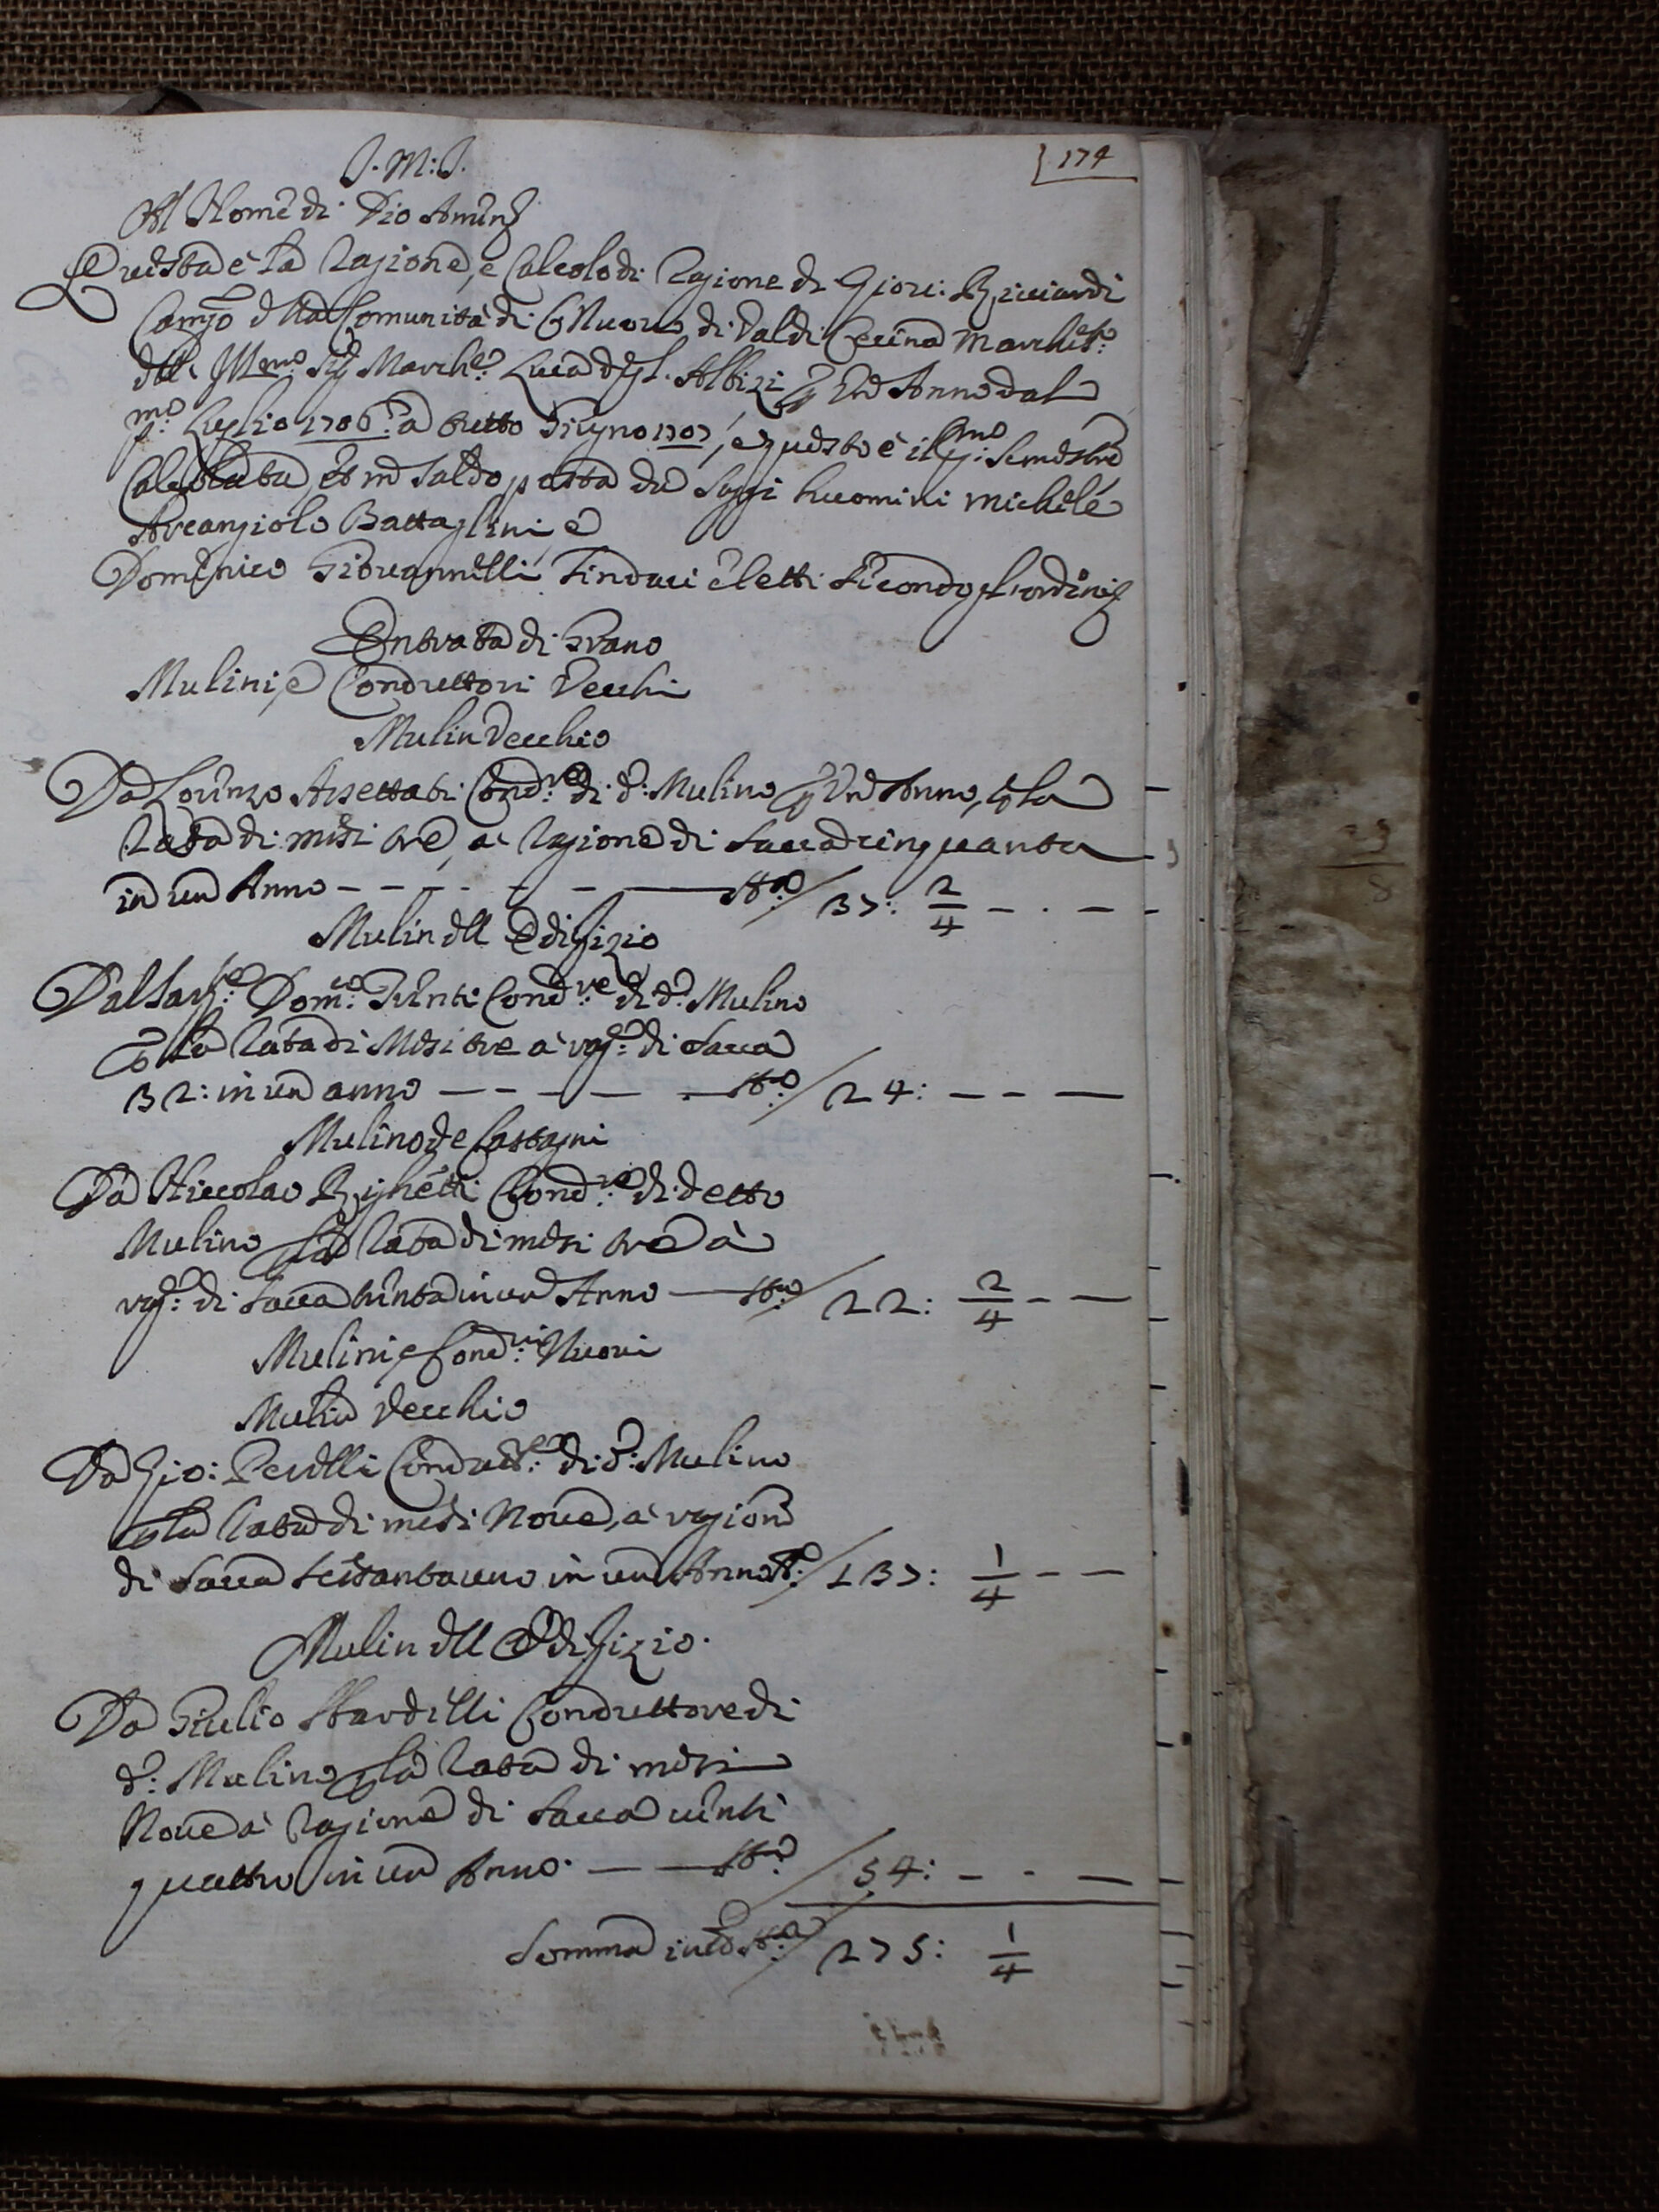 174
J. M: J.
Al Nome di Dio Amen
Questa è la Ragione, e Calcolo di Ragione di Giov: Ricciardi
Camo della Comunità di C Nuovo di Val di Cecina Marchto:
dell Illmo Sig Marche: Luca degl. Albizi p un Anno dal
pmo: Luglio 1706: a tutto Giugno 1707, e questo è il pmo: Semestre
Calcolata, et in Saldo posta da Saggi huomini Michele
Arcangiolo Battaglini e
Domenico Giovannelli Sindaci eletti secondo gl'ordini
Entrata di Grano
Mulini, e Conduttori Vecchi
Mulin Vecchio
Da Lorenzo Assettati Condre: di do: Mulino p un Anno, p la
rata di mesi tre, a ragione di sacca cinquanta
in un Anno - - - - - - Sta:/ 37: 2/4 - - -
Mulin dell Edifizio
Dal Domco: Giunti Condre: di do: Mulino
p la rata di Mesi tre a rage: di sacca
32: in un anno - - - - - Sta:/ 24: - - -
Mulino de Castagni
Da Niccolao Righetti Condre: di detto
Mulino p la rata di mesi tre à
rage: di sacca trenta in un Anno - Sta:/ 22: 2/4 - -
Mulini, e Condri: Nuovi
Mulin Vecchio
Da Gio: Conductre: di do: Mulino
p la rata di mesi Nove, a ragione
di sacca sessantauno in un Anno Sta:/ 137: 1/4 - -
Mulin dell Edifizio.
Da Giulio Nardelli Conduttore di
do: Mulino p la rata di mesi
Nove à ragione di sacca venti
quattro in un Anno. - - Sta:/ 54: - - -
Somma Sta:/ 275: 1/4